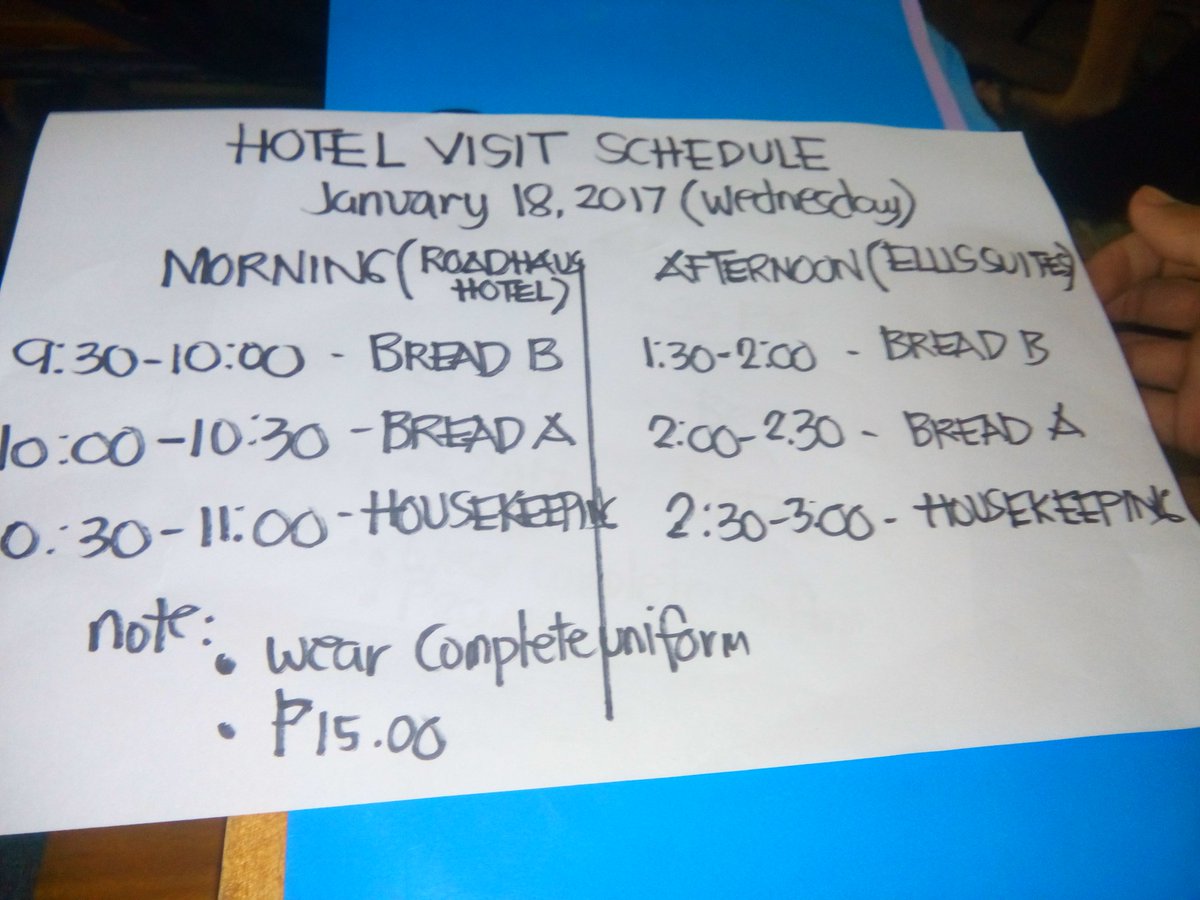 HOTEL VISIT SCHEDULE
January 18, 2017 (Wednesday)
MORNING (ROADHAUS HOTEL)
9:30-10:00 - BREAD B
10:00-10:30 - BREAD A
0:30-11:00 - HOUSEKEEPING
AFTERNOON (ELLIS SUITES)
1:30-2:00 - BREAD B
2:00-2:30 - BREAD A
2:30-3:00 - HOUSEKEEPING
note:
• wear complete uniform
• ₱15.00